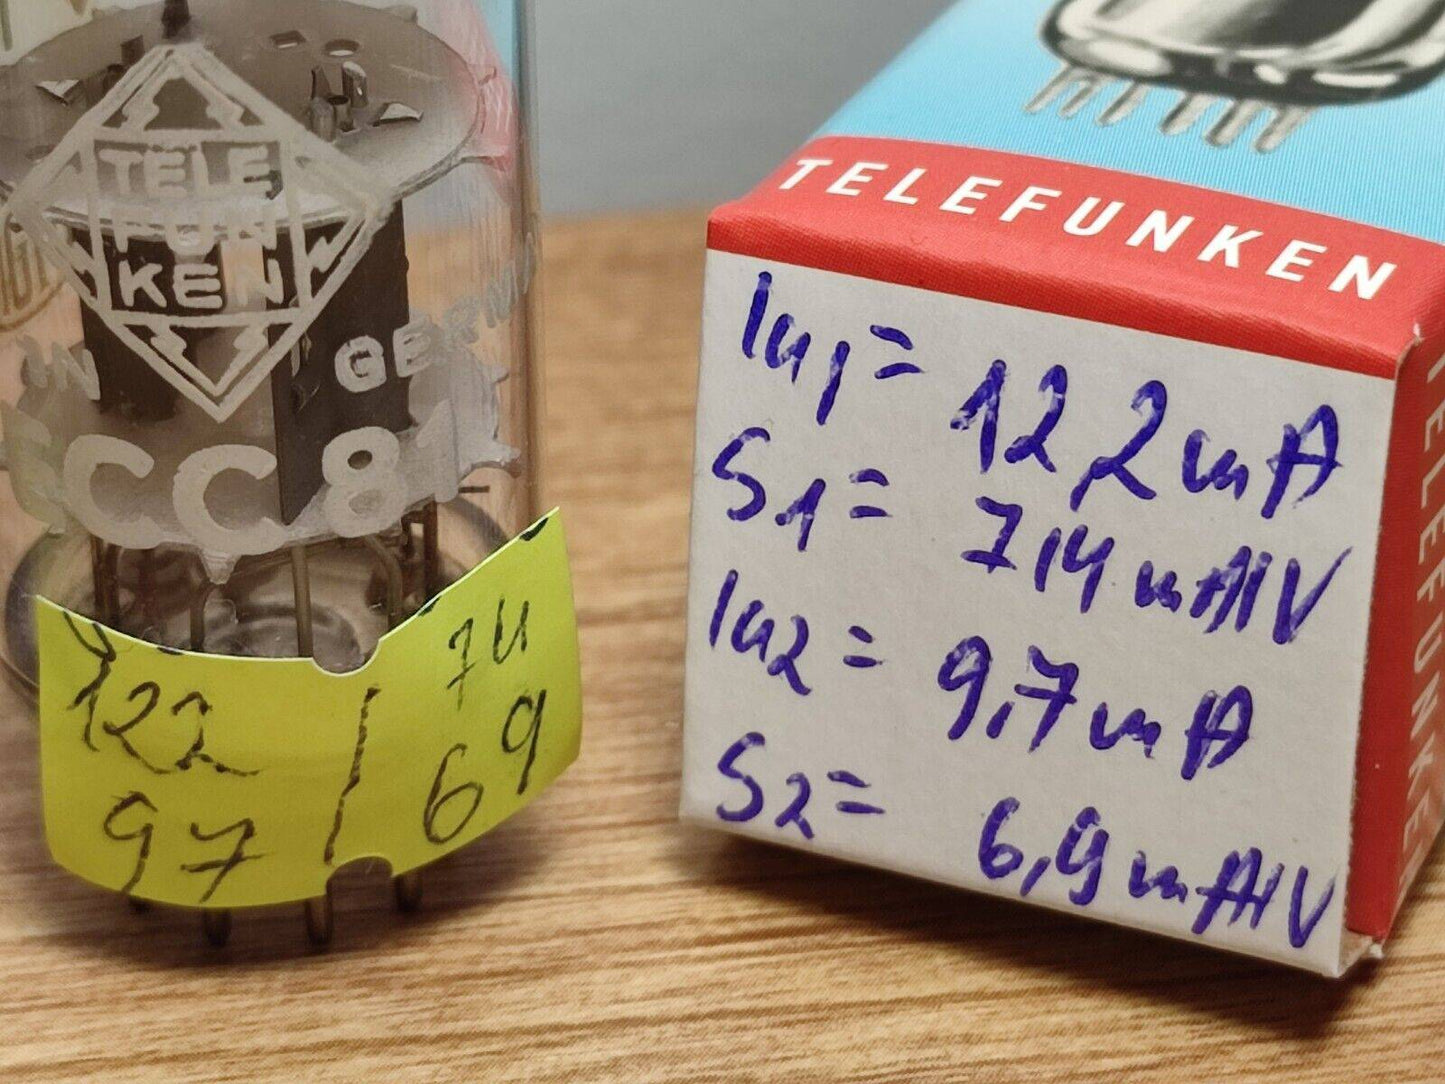 TELE
FUN
KEN
IN
GERMA
ECC81
122 / 74
97 / 69
TELEFUNKEN
Ia1= 12,2mA
S1= 7,4mA/V
Ia2= 9,7mA
S2= 6,9mA/V
TELEFUNKEN